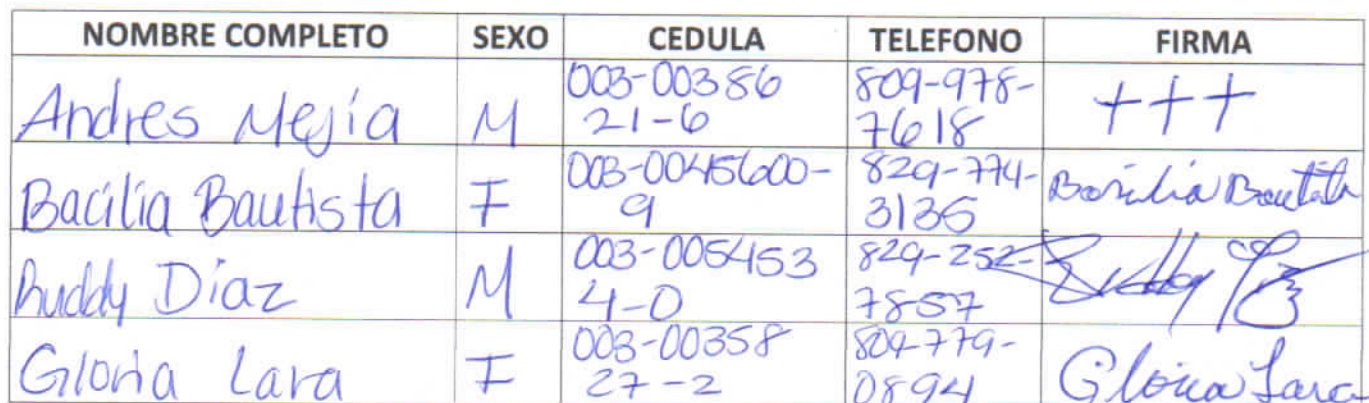 NOMBRE COMPLETO SEXO CEDULA TELEFONO FIRMA
Andres Mejía M 003-00386 21-6 809-978-7618 +++
Bacilia Bautista F 003-0045600-9 829-774-3135 Basilia Bautista
Buddy Díaz M 003-0054534-0 829-252-7857
Gloria Lara F 003-00358 27-2 809-779-0894 Gloria Lara